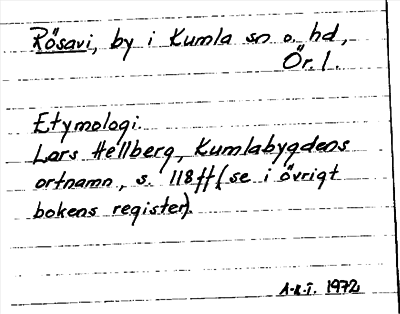 Rösavi, by i Kumla sn o. hd,
Ör. l.
Etymologi.
Lars Hellberg, Kumlabygdens
ortnamn, s. 118ff (se i övrigt
bokens register).
A-K.I. 1972